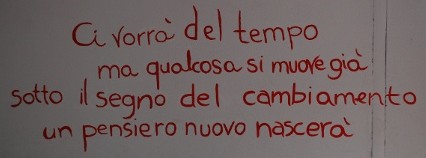 Ci vorrà del tempo
ma qualcosa si muove già
sotto il segno del cambiamento
un pensiero nuovo nascerà